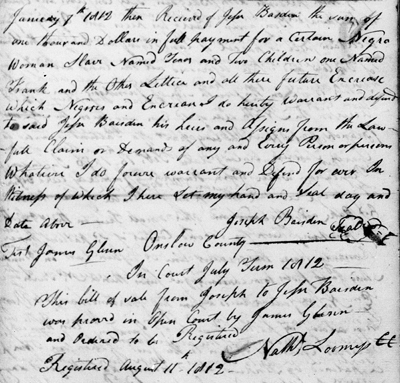 January 8th 1812 then Received of Jesse Barsden the sum of
one thousand Dollars in full payment for a Certain Negro
Woman Slave Named and Two Children one Named
Frank and the Other Lettice and all there future Encrease
Which Negroes and Encrease I do hereby Warrant and defend
to said Jesse Barsden his heirs and Assigns from the Law-
full Claims or Demands of any and Every Person or persons
Whatever I do forever warrant and Defend for ever In
Witness of Which I here Set my hand and Seal day and
Date above Joseph Barsden Seal
Test James Glenn Onslow County
In Court July Term 1812
This bill of sale from Joseph to Jesse Barsden
was proved in Open Court by James Glenn
and Ordered to be Registered
Nathl. Loomiss CC
Registered August 11th 1812